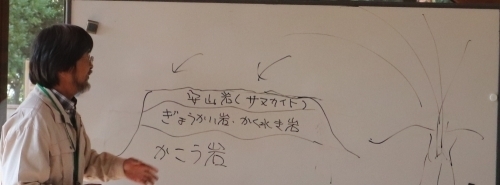 安山岩(サヌカイト)
ぎょうかい岩・かくれき岩
かこう岩